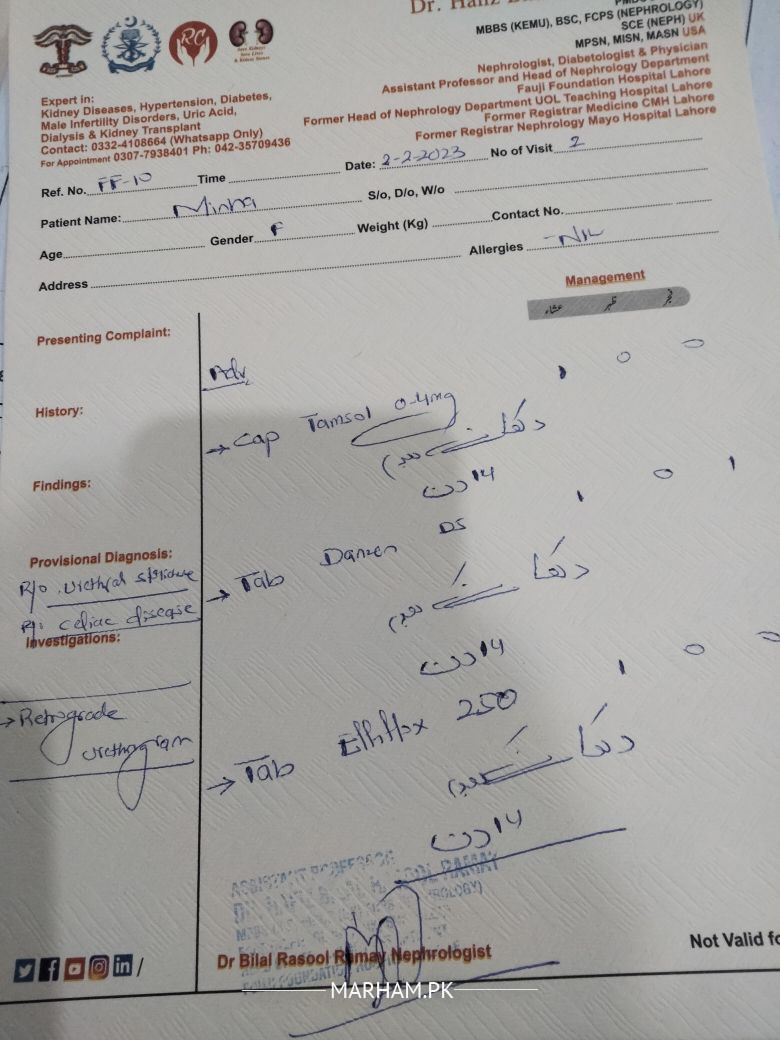 Dr. Hafiz
MBBS (KEMU), BSC, FCPS (NEPHROLOGY)
SCE (NEPH) UK
MPSN, MISN, MASN USA
Nephrologist, Diabetologist & Physician
Assistant Professor and Head of Nephrology Department
Fauji Foundation Hospital Lahore
Former Head of Nephrology Department UOL Teaching Hospital Lahore
Former Registrar Medicine CMH Lahore
Former Registrar Nephrology Mayo Hospital Lahore
RC
Save Kidneys
Save Lives
Expert in:
Kidney Diseases, Hypertension, Diabetes,
Male Infertility Disorders, Uric Acid,
Dialysis & Kidney Transplant
Contact: 0332-4108664 (Whatsapp Only)
For Appointment 0307-7938401 Ph: 042-35709436
Ref. No. FF-10 Time Date: 2-2-2023 No of Visit 2
Patient Name: S/o, D/o, W/o
Age Gender F Weight (Kg) Contact No.
Address Allergies -NIL
Management
فجر ظہر عشاء
Presenting Complaint:
Adv,
1 0 0
History:
→ Cap Tamsol 0.4mg
کھانے کے بعد
۱۴ دن
Findings:
1 0 1
Provisional Diagnosis:
R/o urethral stricture
celiac disease
→ Tab Danzen DS
کھانے کے بعد
۱۴ دن
Investigations:
→ Retrograde
urethrogram
1 0 0
→ Tab 250
کھانے کے بعد
۱۴ دن
ASSISTANT PROFESSOR
Dr Bilal Rasool Ramay Nephrologist
Not Valid fo
MARHAM.PK